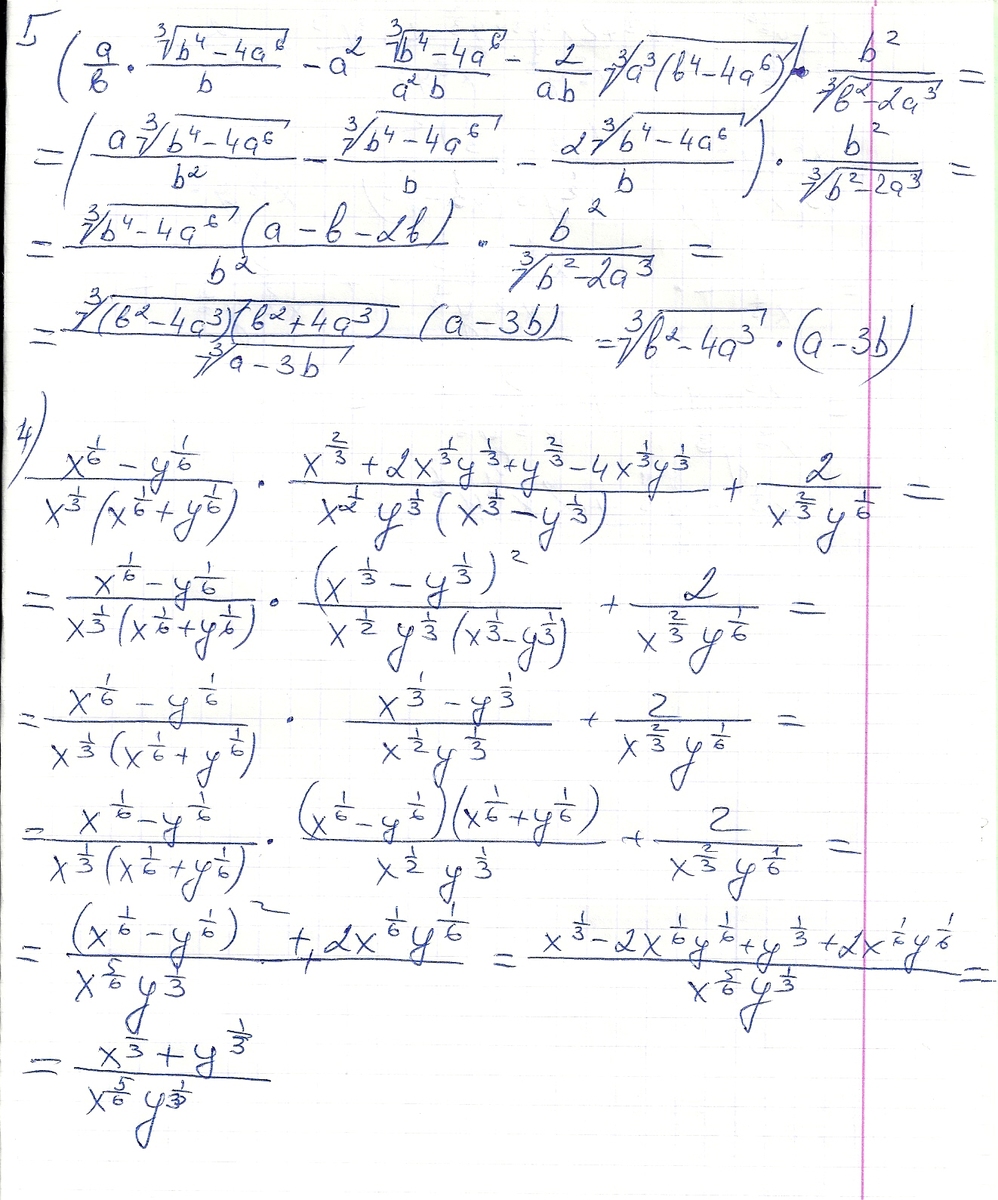 5 (a/в · ∛(b⁴-4a⁶)/b - a² ∛(b⁴-4a⁶)/(a²b) - 2/(ab) ∛(a³(b⁴-4a⁶))) · b²/∛(в²-2a³) =
= (a∛(b⁴-4a⁶)/b² - ∛(b⁴-4a⁶)/b - 2∛(b⁴-4a⁶)/b) · b²/∛(b²-2a³) =
= ∛(b⁴-4a⁶)(a-в-2в)/b² · b²/∛(b²-2a³) =
= ∛((в²-4a³)(в²+4a³)) (a-3b)/∛(a-3b) = ∛(в²-4a³) · (a-3b)
4) (x^(1/6) - y^(1/6))/(x^(1/3)(x^(1/6)+y^(1/6))) · (x^(2/3)+2x^(1/3)y^(1/3)+y^(2/3)-4x^(1/3)y^(1/3))/(x^(1/2)y^(1/3)(x^(1/3)-y^(1/3))) + 2/(x^(2/3)y^(1/6)) =
= (x^(1/6)-y^(1/6))/(x^(1/3)(x^(1/6)+y^(1/6))) · (x^(1/3)-y^(1/3))²/(x^(1/2)y^(1/3)(x^(1/3)-y^(1/3))) + 2/(x^(2/3)y^(1/6)) =
= (x^(1/6)-y^(1/6))/(x^(1/3)(x^(1/6)+y^(1/6))) · (x^(1/3)-y^(1/3))/(x^(1/2)y^(1/3)) + 2/(x^(2/3)y^(1/6)) =
= (x^(1/6)-y^(1/6))/(x^(1/3)(x^(1/6)+y^(1/6))) · (x^(1/6)-y^(1/6))(x^(1/6)+y^(1/6))/(x^(1/2)y^(1/3)) + 2/(x^(2/3)y^(1/6)) =
= ((x^(1/6)-y^(1/6))² + 2x^(1/6)y^(1/6))/(x^(5/6)y^(1/3)) = (x^(1/3)-2x^(1/6)y^(1/6)+y^(1/3)+2x^(1/6)y^(1/6))/(x^(5/6)y^(1/3)) =
= (x^(1/3)+y^(1/3))/(x^(5/6)y^(1/3))